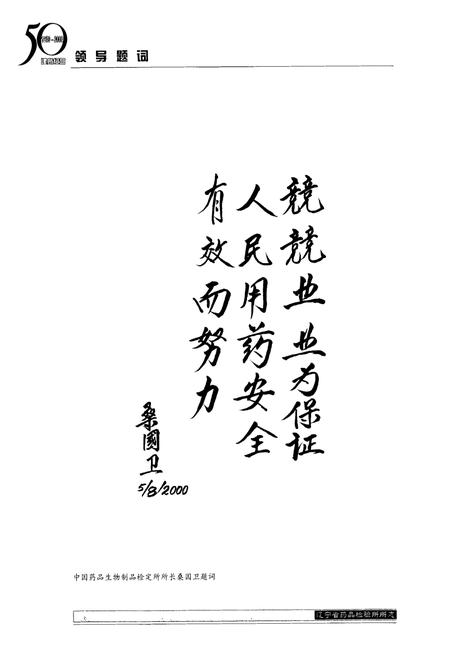 50
领导题词
競競业业为保证
人民用药安全
有效而努力
桑國卫
5/8/2000
中国药品生物制品检定所所长桑国卫题词
辽宁省药品检验所所志